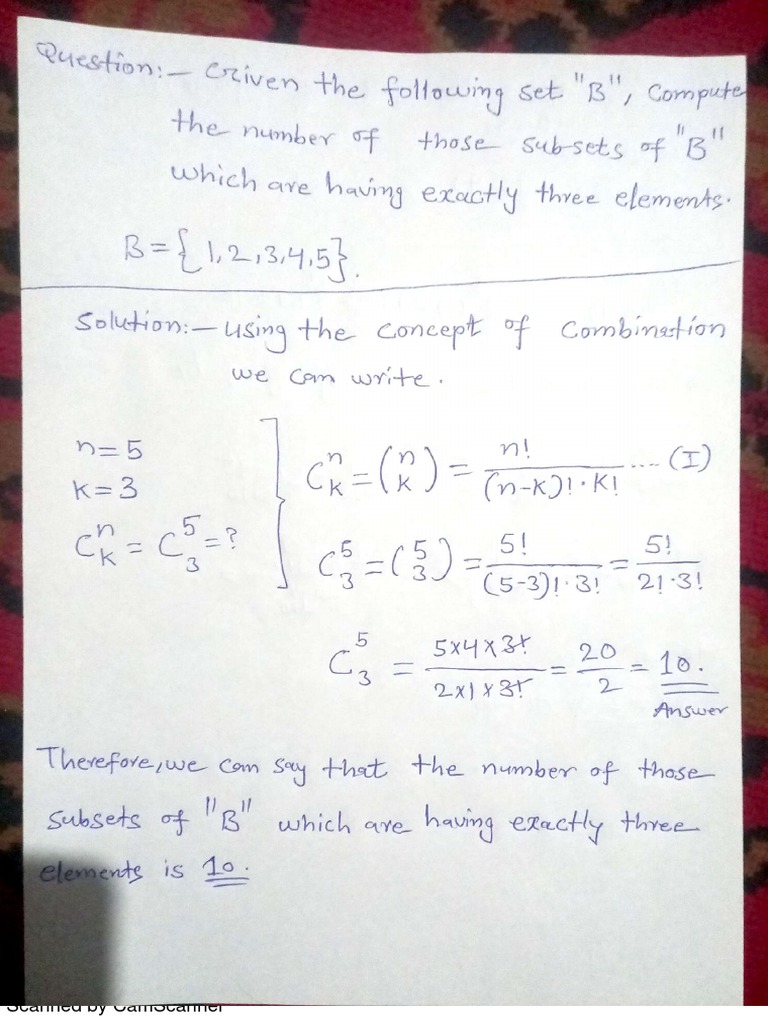 Question:- Given the following set "B", Compute
the number of those sub-sets of "B"
which are having exactly three elements.
B = {1,2,3,4,5}.
Solution:- Using the concept of Combination
we can write.
n=5
K=3
C^n_K = C^5_3 = ?
C^n_K = (n K) = n! / (n-K)! · K! .... (I)
C^5_3 = (5 3) = 5! / (5-3)! · 3! = 5! / 2! · 3!
C^5_3 = 5x4x3! / 2x1x3! = 20 / 2 = 10.
Answer
Therefore, we can say that the number of those
subsets of "B" which are having exactly three
elements is 10.
Scanned by CamScanner